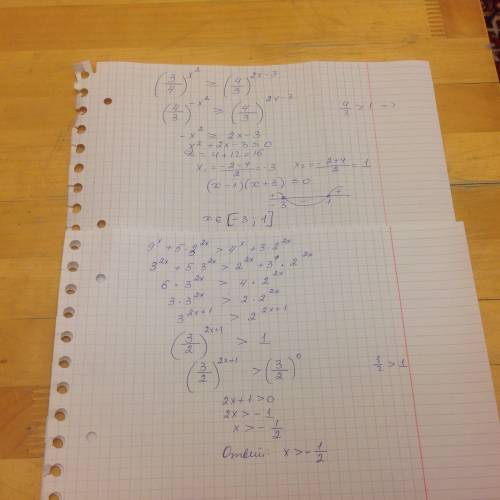 (3/4)^x² ≥ (4/3)^2x-3
(4/3)^-x² ≥ (4/3)^2x-3 4/3 > 1 =>
-x² ≥ 2x-3
x² + 2x - 3 ≤ 0
= 4+12 = 16
x₁ = (-2-4)/2 = -3 x₂ = (-2+4)/2 = 1
(x-1)(x+3) ≤ 0
+ - +
-3 1
x ∈ [-3; 1]
9^x + 5·3^2x > 4^x + 3·2^2x
3^2x + 5·3^2x > 2^2x + 3·2^2x
6·3^2x > 4·2^2x
3·3^2x > 2·2^2x
3^2x+1 > 2^2x+1
(3/2)^2x+1 > 1
(3/2)^2x+1 > (3/2)^0 3/2 > 1
2x+1 > 0
2x > -1
x > -1/2
Ответ: x > -1/2